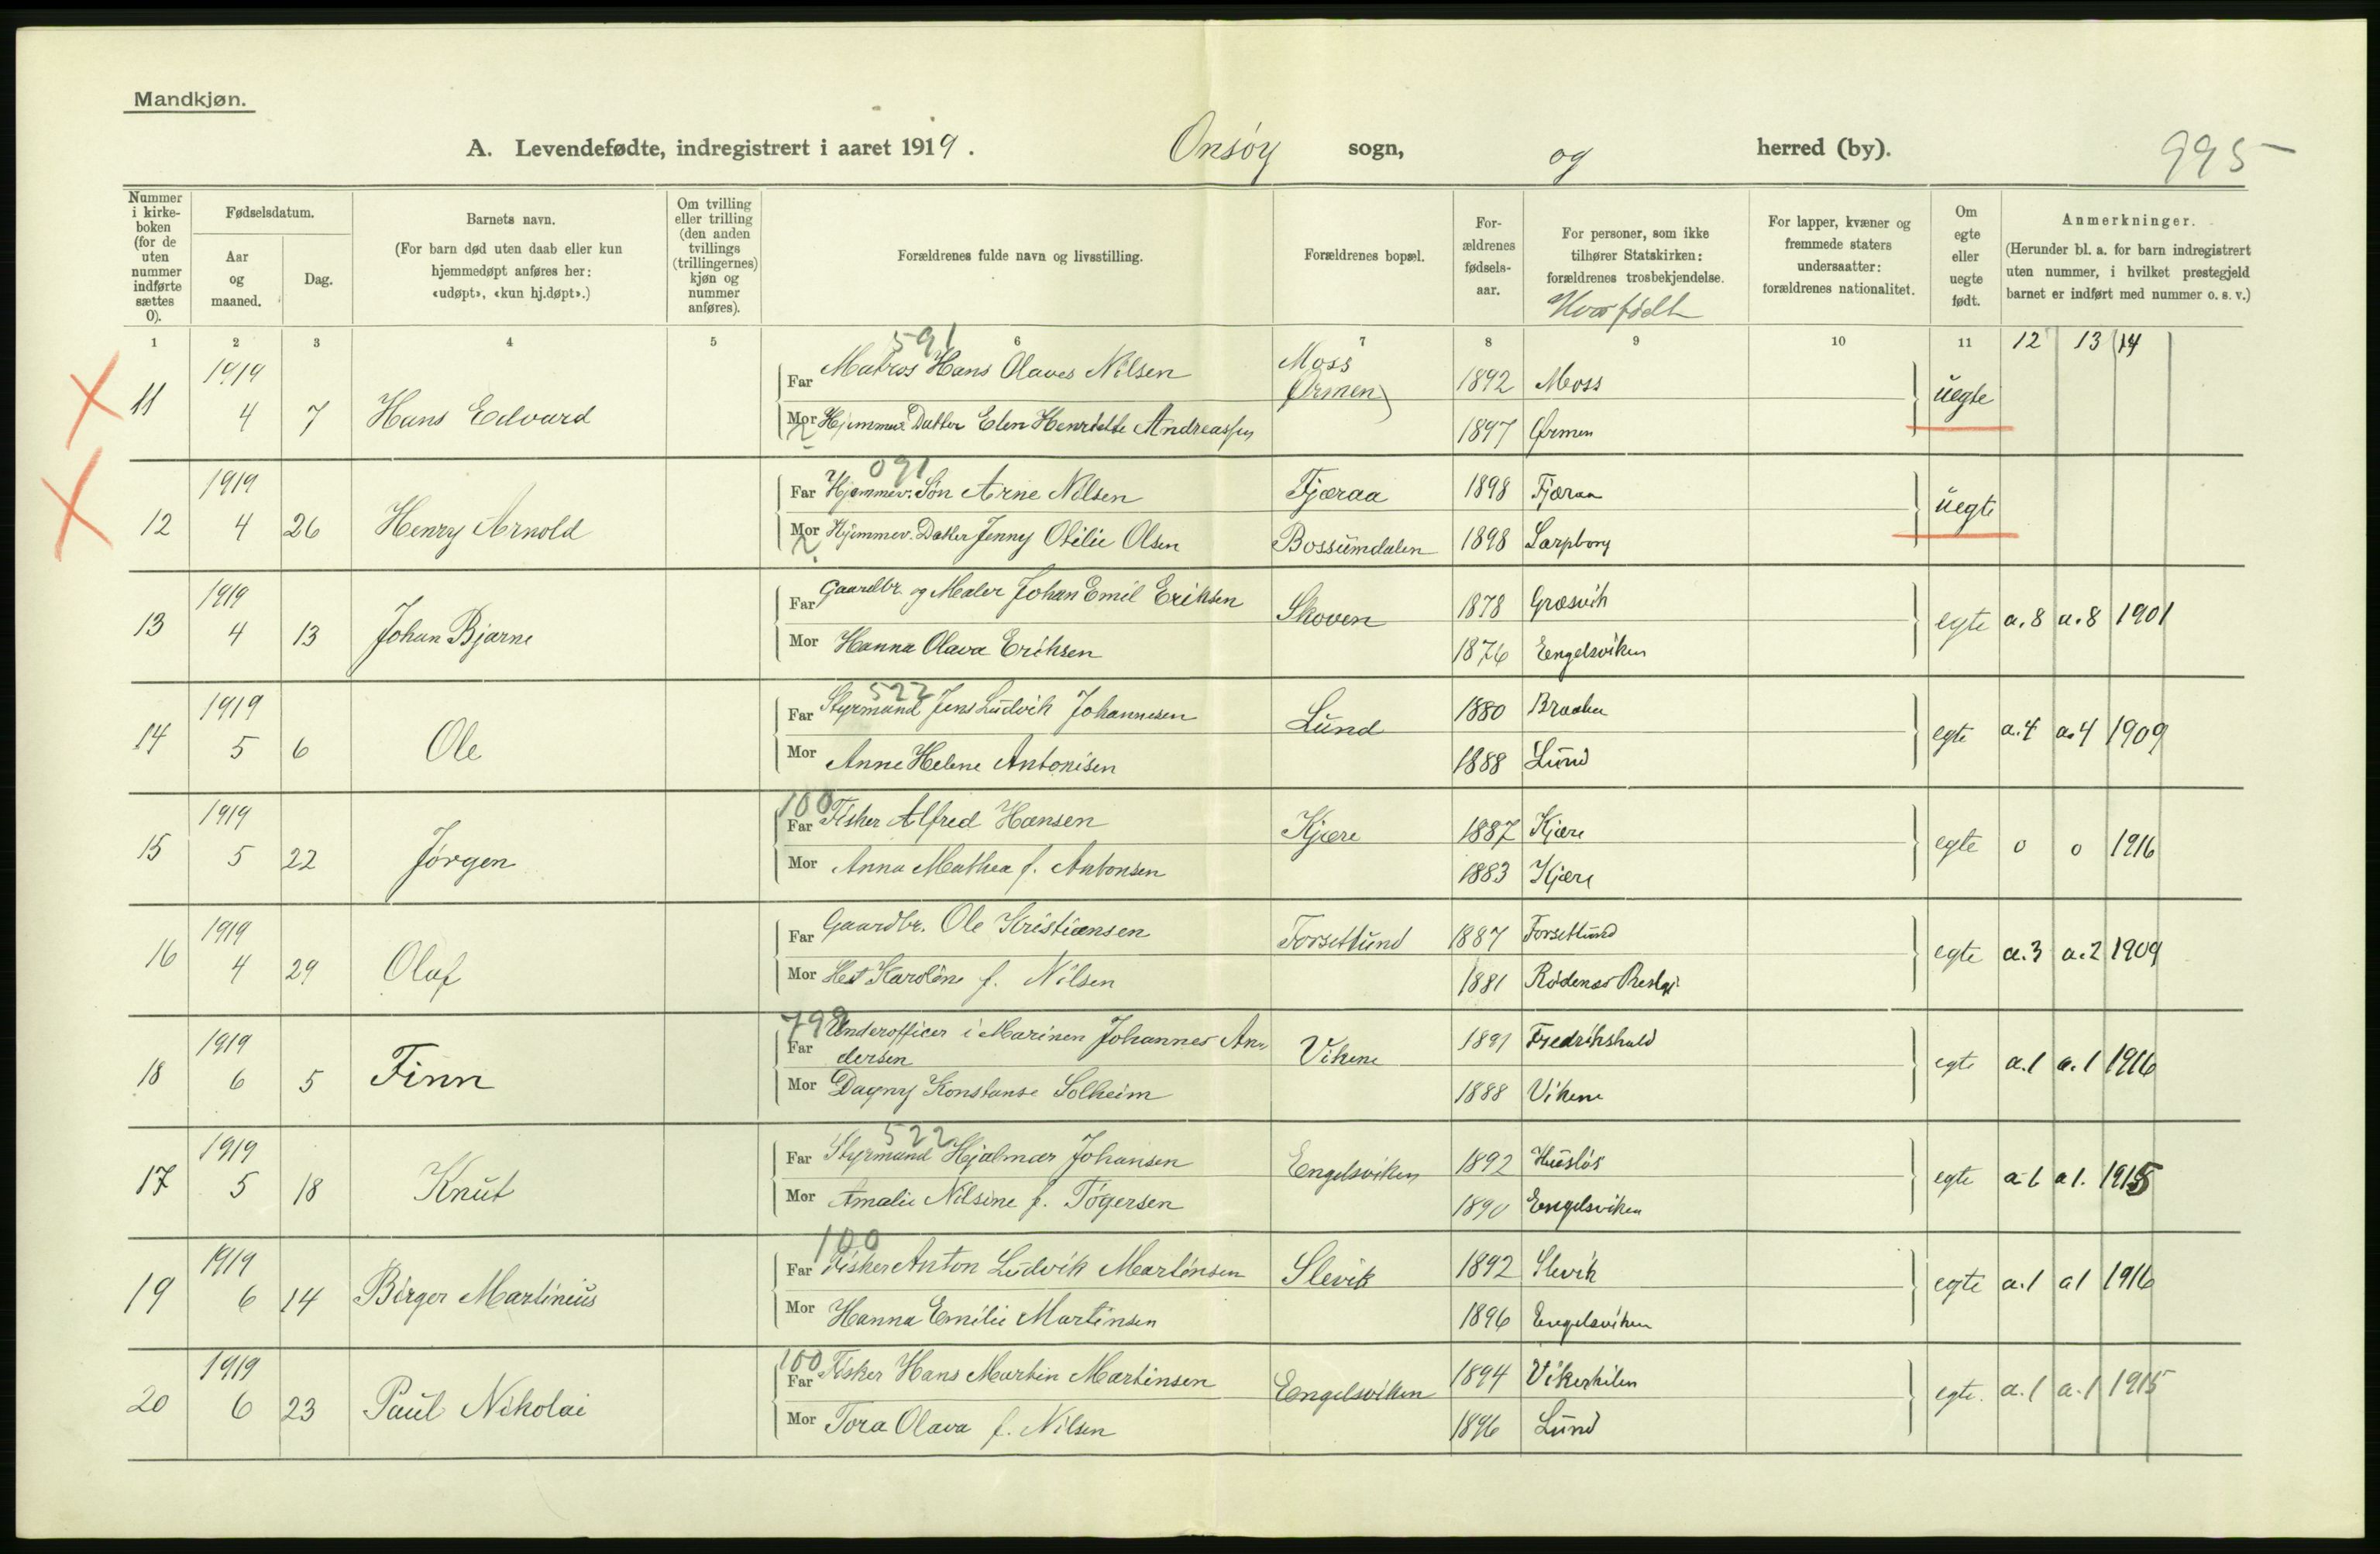 Mandkjøn.
A. Levendefødte, indregistrert i aaret 1919. Onsöy sogn, og herred (by). 995
Nummer i kirkeboken (for de uten nummer indførte sættes 0).
Fødselsdatum.
Aar og maaned.
Dag.
Barnets navn.
(For barn død uten daab eller kun hjemmedøpt anføres her: «udøpt», «kun hj.døpt».)
Om tvilling eller trilling (den anden tvillings (trillingernes) kjøn og nummer anføres).
Forældrenes fulde navn og livsstilling.
Forældrenes bopæl.
Forældrenes fødselsaar.
For personer, som ikke tilhører Statskirken: forældrenes trosbekjendelse.
Hvor født
For lapper, kvæner og fremmede staters undersaatter: forældrenes nationalitet.
Om egte eller uegte født.
Anmerkninger.
(Herunder bl. a. for barn indregistrert uten nummer, i hvilket prestegjeld barnet er indført med nummer o. s. v.)
1 2 3 4 5 6 7 8 9 10 11 12 13 14
591
11 1919 4 7 Hans Edvard Far Matros Hans Olaves Nilsen Moss 1892 Moss uegte
Mor Hjemmev. Datter Elen Henriette Andreassen Ørmen 1897 Ørmen
091
12 1919 4 26 Henry Arnold Far Hjemmev. Søn Arne Nilsen Fjæraa 1898 Fjæraa uegte
Mor Hjemmev. Datter Jenny Otilie Olsen Bossumdalen 1898 Sarpborg
13 1919 4 13 Johan Bjarne Far Gaardbr. og Maler Johan Emil Eriksen Skoven 1878 Græsvik egte a.8 a.8 1901
Mor Hanna Olava Eriksen 1876 Engelsviken
522
14 1919 5 6 Ole Far Styrmand Jens Ludvik Johannesen Lund 1880 Braaten egte a.4 a.4 1909
Mor Anne Helene Antonisen 1888 Lund
100
15 1919 5 22 Jörgen Far Fisker Alfred Hansen Kjære 1887 Kjære egte 0 0 1916
Mor Anna Mathea f. Antonsen 1883 Kjære
16 1919 4 29 Olaf Far Gaardbr. Ole Kristiansen Torsetlund 1887 Torsetlund egte a.3 a.2 1909
Mor Karoline f. Nilsen 1881 Rödenes Prestgj.
799
18 1919 6 5 Finn Far Underofficer i Marinen Johannes Andersen Vikene 1891 Fredrikshald egte a.1 a.1 1916
Mor Dagny Konstanse Solheim 1888 Vikene
522
17 1919 5 18 Knut Far Styrmand Hjalmar Johansen Engelsviken 1892 Huslös egte a1 a1. 1915
Mor Amalie Nilsine f. Tögersen 1890 Engelsviken
100
19 1919 6 14 Birger Martinius Far Fisker Anton Ludvik Martinsen Slevik 1892 Slevik egte a.1 a1 1916
Mor Hanna Emilie Martinsen 1896 Engelsviken
100
20 1919 6 23 Paul Nikolai Far Fisker Hans Martin Martinsen Engelsviken 1894 Vikerkilen egte. a.1 a.1 1915
Mor Tora Olava f. Nilsen 1896 Lund